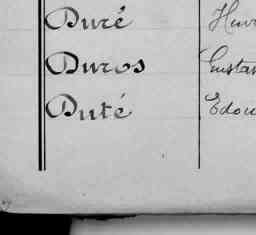 Duré
Duros Gusta
Duté Edou